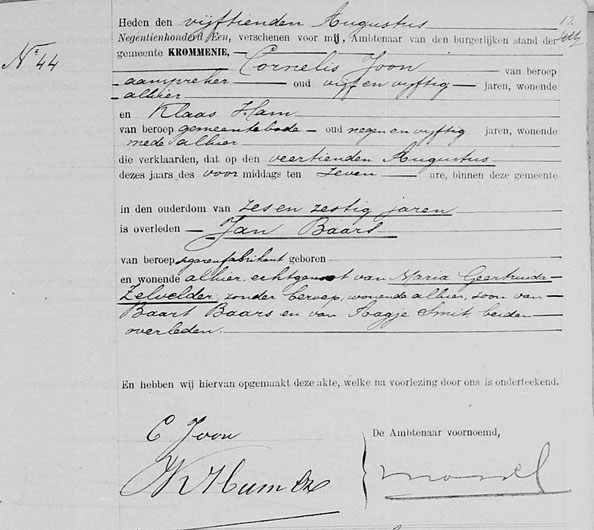 Heden den vijftienden Augustus
Negentienhonderd Een, verschenen voor mij, Ambtenaar van den burgerlijken stand der
gemeente KROMMENIE, 
No 44
Cornelis Joon van beroep
aanspreker oud vijf en vijftig jaren, wonende
alhier
en Klaas Ham
van beroep gemeentebode oud negen en vijftig jaren, wonende
mede alhier
die verklaarden, dat op den veertienden Augustus
dezes jaars des voormiddags ten zeven ure, binnen deze gemeente
in den ouderdom van zes en zestig jaren
is overleden Jan Baars
van beroep sigarenfabrikant geboren
en wonende alhier, echtgenoot van Maria Geertruida
Zelvelder, zonder beroep, wonende alhier, zoon van
Baart Baars en van Aagje Smit, beiden
overleden.
En hebben wij hiervan opgemaakt deze akte, welke na voorlezing door ons is onderteekend.
C Joon
De Ambtenaar voornoemd,
K Ham